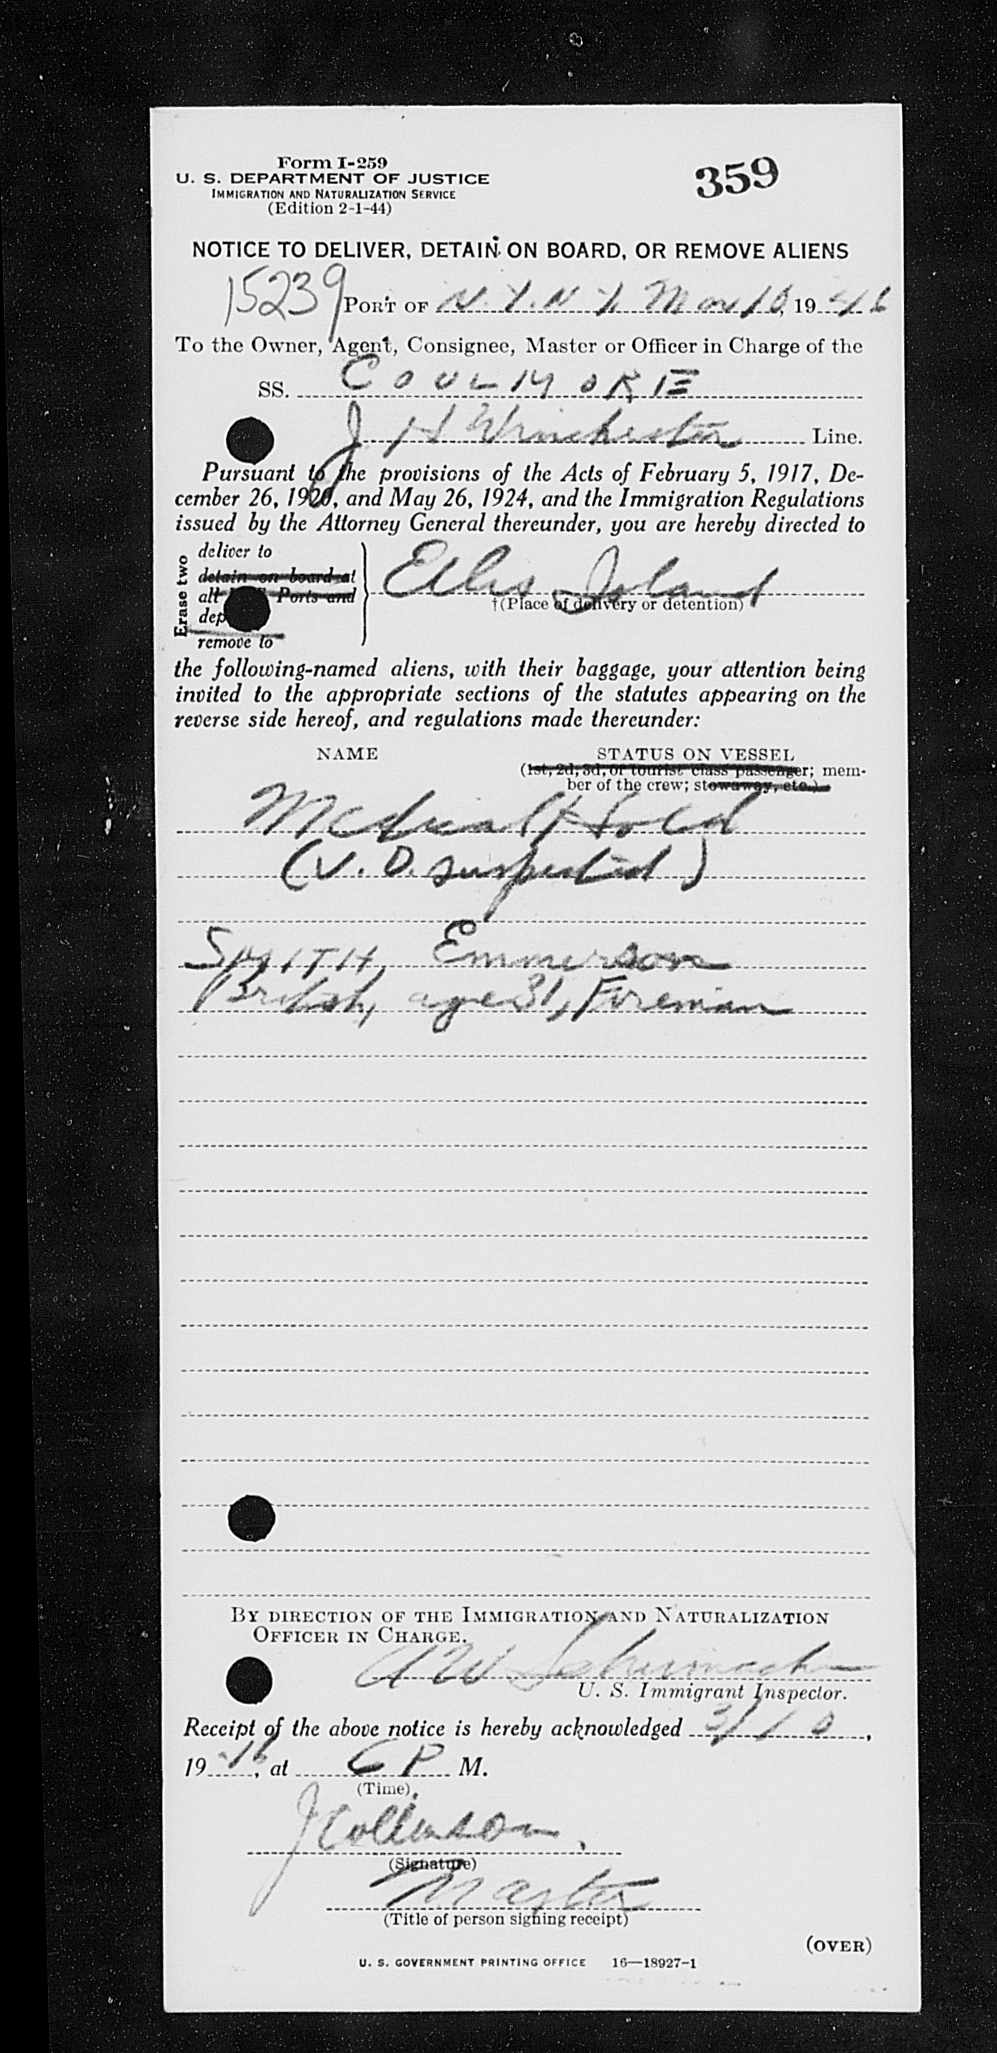 Form I-259
U. S. DEPARTMENT OF JUSTICE
IMMIGRATION AND NATURALIZATION SERVICE
(Edition 2-1-44)
359
NOTICE TO DELIVER, DETAIN ON BOARD, OR REMOVE ALIENS
15239
PORT OF N.Y. N.Y. Mar 10, 1946
To the Owner, Agent, Consignee, Master or Officer in Charge of the
SS. COULMORE
J H Winchester Line.
Pursuant to the provisions of the Acts of February 5, 1917, De-
cember 26, 1920, and May 26, 1924, and the Immigration Regulations
issued by the Attorney General thereunder, you are hereby directed to
Erase two
deliver to
detain on board at
all Ports and
remove to
Ellis Island
†(Place of delivery or detention)
the following-named aliens, with their baggage, your attention being
invited to the appropriate sections of the statutes appearing on the
reverse side hereof, and regulations made thereunder:
NAME STATUS ON VESSEL
(1st, 2d, 3d, or tourist class passenger; mem-
ber of the crew; stowaway, etc.)
Medical Hold
(V.D. suspected)
SMITH, Emmerson
British, age 31, Fireman
BY DIRECTION OF THE IMMIGRATION AND NATURALIZATION
OFFICER IN CHARGE.
A W Schumacher
U. S. Immigrant Inspector.
Receipt of the above notice is hereby acknowledged 3/10,
1946, at 6 P M.
(Time)
J Collinson.
(Signature)
Master
(Title of person signing receipt)
(OVER)
U. S. GOVERNMENT PRINTING OFFICE 16—18927-1